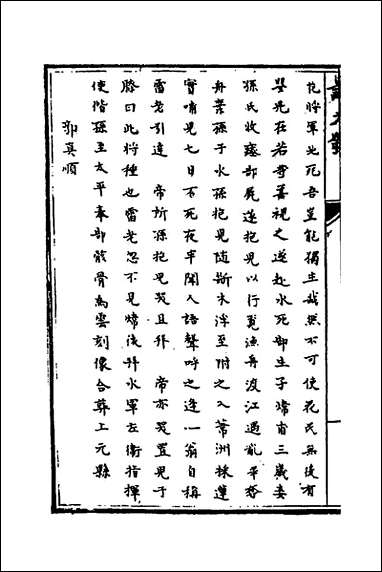 花將軍必死吾豈能獨生哉然不可使花氏無後有
嬰兒在若等善視之遂赴水死郜生子煒甫三歲妾
孫氏收瘞郜屍遂抱兒以行覓漁舟渡江遇亂軍奪
舟棄孫子水孫抱兒隨斷木浮至附之入葦洲採蓮
實哺兒七日不死夜半聞人語聲呼之逢一翁自稱
雷老引達　帝所孫抱兒哭且拜　帝亦哭置兒于
膝曰此將種也雷老忽不見煒後陞水軍左衛指揮
使偕孫至太平奉郜骸骨為雲刻像合葬上元縣
郭真順